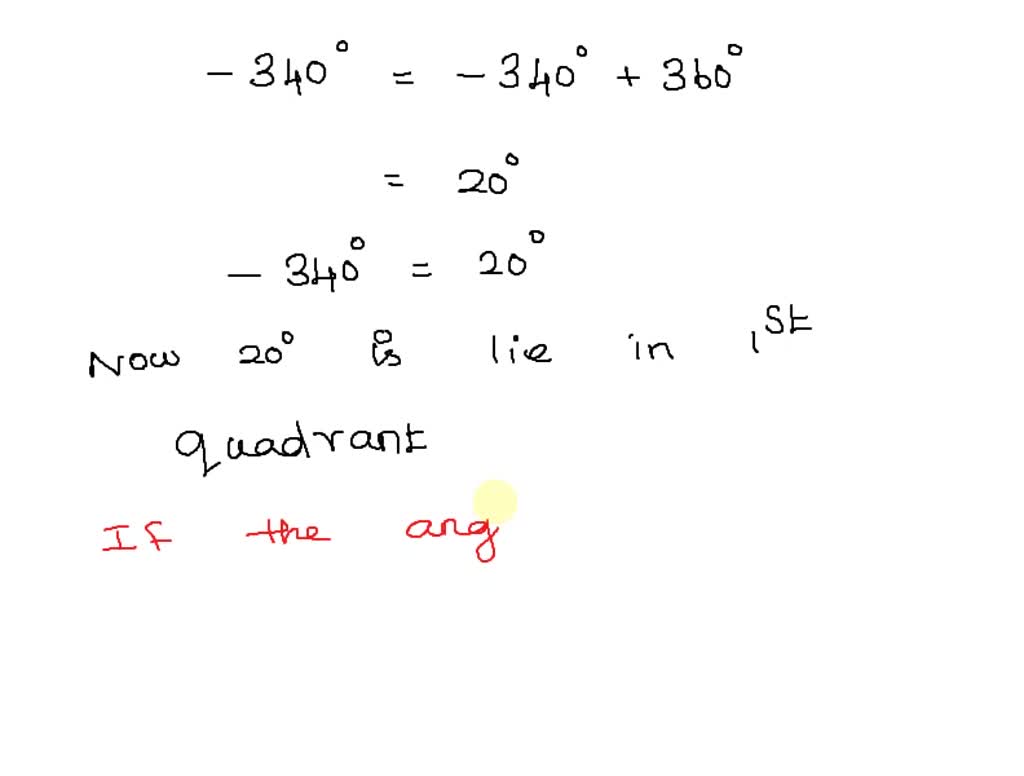 - 340° = - 340° + 360°
= 20°
- 340° = 20°
Now 20° is lie in 1st
quadrant
If the ang